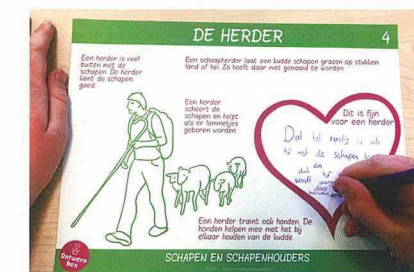 DE HERDER
4
Een herder is veel
buiten met de
schapen. De herder
kent de schapen
goed.
Een schaapherder laat een kudde schapen grazen op stukken
land of hei. Zo hoeft daar niet gemaaid te worden.
Een herder
scheert de
schapen en helpt
als er lammetjes
geboren worden.
Dit is fijn
voor een herder
Dat het rustig is als
hij met de schapen
en
dat hij
wordt
door
Een herder traint ook honden. De
honden helpen mee met het bij
elkaar houden van de kudde.
Ontwerp
box
SCHAPEN EN SCHAPENHOUDERS